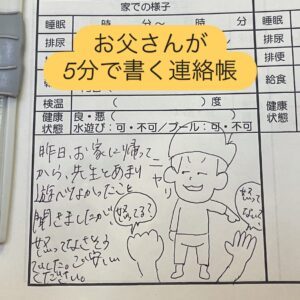 家での様子
睡眠
時 分～ 時 分
睡眠
排尿
排尿
排便
お父さんが
5分で書く連絡帳
給食
検温 ( )度
健康状態
良・悪( )
水遊び：可・不可/プール：可・不可
健康状態
昨日、お家に帰って
から、先生とあまり
遊べなかったこと
聞きましたが
怒ってなさそう
でした。ご安心
ください。
ニヤリ
怒ってる？
怒ってないっ